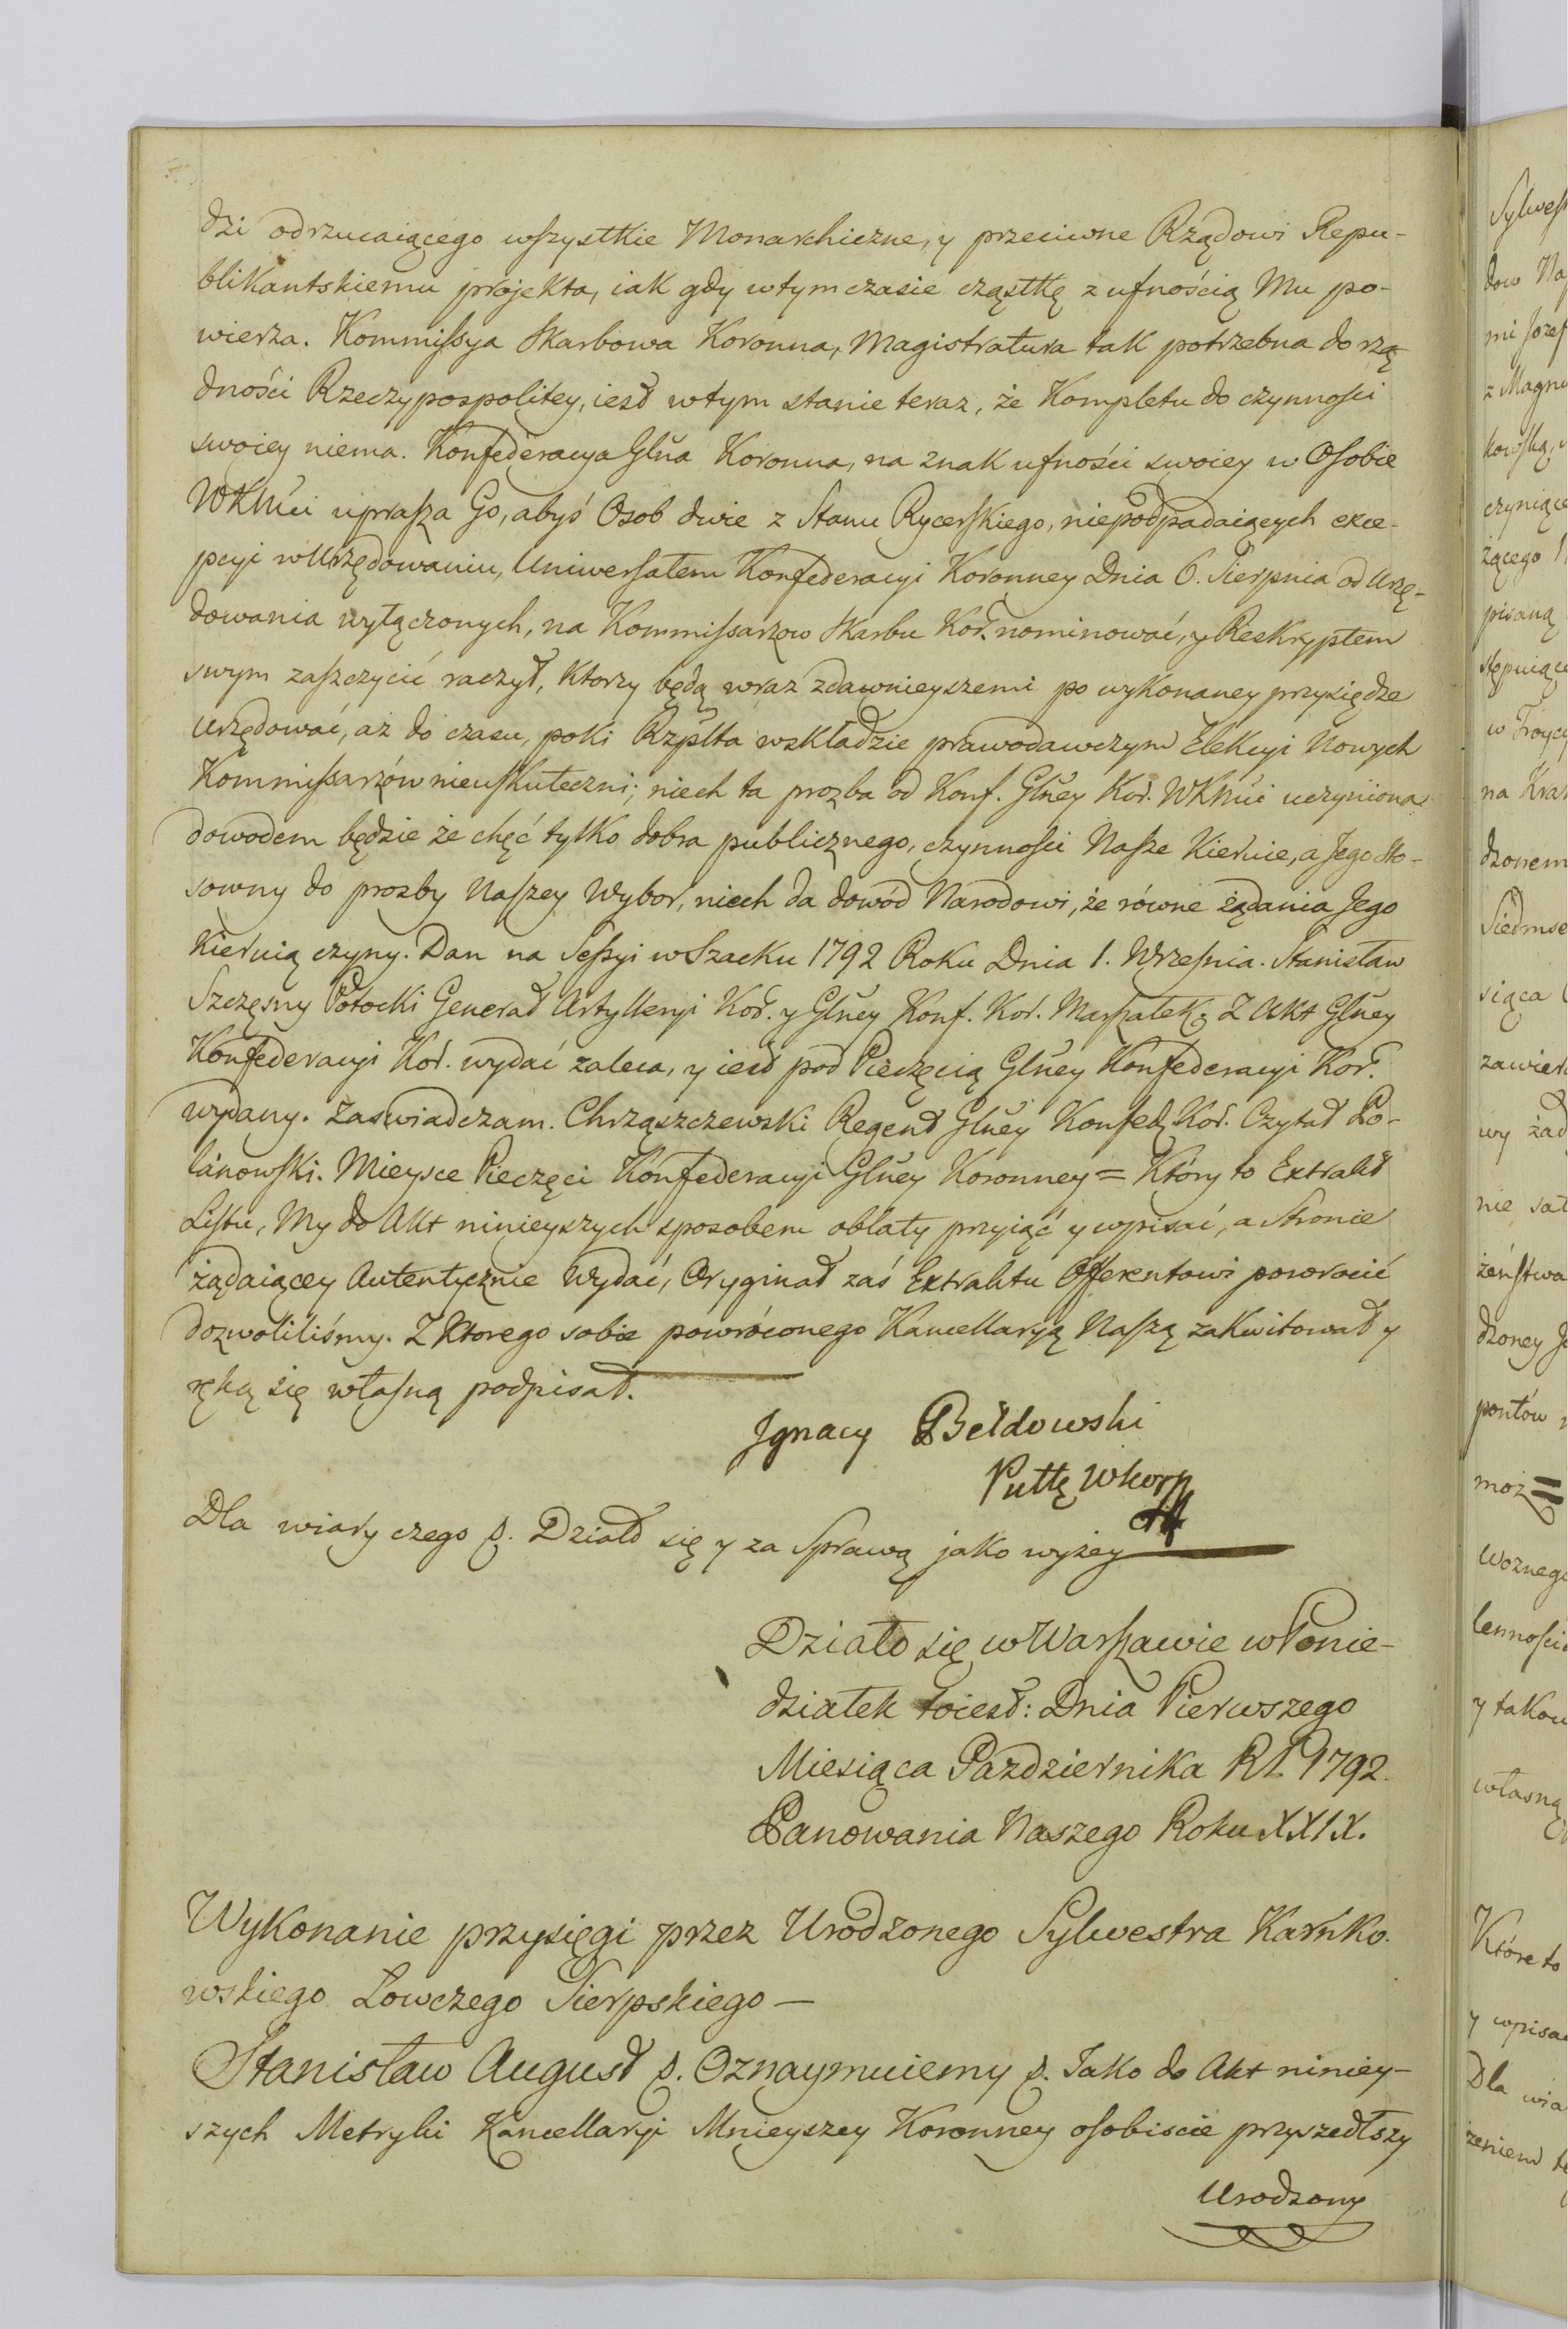 dzi odrzucaiącego wszystkie Monarchiczne, y przeciwne Rządowi Repu-
blikantskiemu projekta, iak gdy w tym czasie cząstkę z ufnością Mu po-
wierza. Kommissya Skarbowa Koronna, Magistratura tak potrzebna do rzą
dności Rzeczypospolitey, iest w tym stanie teraz, że Kompletu do czynności
swoiey niema. Konfederacya Glna Koronna, na znak ufności swoiey w Osobie
WKMci uprasza Go, abyś Osob dwie z Stanu Rycerskiego, niepodpadaiących exce-
pcyi w Urzędowaniu, Uniwersałem Konfederacyi Koronney Dnia 6. Sierpnia od Urzę-
dowania wyłączonych, na Kommissarzow Skarbu Kor. nominować, y Reskryptem
swym zaszczycić raczył, Ktorzy będą wraz z dawnieyszemi po wykonaney przysiędze
Urzędować, aż do czasu, poki Rzplta w składzie prawodawczym Elekcyi Nowych
Kommissarzów nieuskuteczni; niech ta prozba od Konf. Glney Kor. WKMci uczyniona
dowodem będzie że chęć tylko dobra publicznego, czynności Nasze Kieruie, a Jego sto-
sowny do prozby Naszey Wybor, niech da dowód Narodowi, że równe żądania Jego
Kieruią czyny. Dan na Sessyi w Szacku 1792 Roku Dnia 1. Września. Stanisław
Szczęsny Potocki Generał Artylleryi Kor. y Glney Konf. Kor. Marszałek. Z Akt Glney
Konfederacyi Kor. wydać zaleca, y iest pod Pieczęcią Glney Konfederacyi Kor.
wydany. Zaswiadczam. Chrząszczewski Regent Glney Konfed. Kor. Czytał Po-
lanowski. Mieysce Pieczęci Konfederacyi Glney Koronney = Który to Extrakt
Listu, My do Akt ninieyszych sposobem oblaty przyiąć y wpisać, a Stronie
żądaiącey Autentycznie Wydać, Oryginał zaś Extraktu Offerentowi powrocić
dozwoliliśmy. Z Ktorego sobie powróconego Kancellaryą Naszą zakwitował y
ręką się własną podpisał.
Ignacy Bełdowski
Dla wiary czego p. Dział się y za Sprawą jako wyżey
Działo się w Warszawie w Ponie-
działek toiest: Dnia Pierwszego
Miesiąca Pazdziernika RP. 1792.
Panowania Naszego Roku XXIX.
Wykonanie przysięgi przez Urodzonego Sylwestra Karnko.
wskiego Lowczego Sierpskiego —
Stanisław August p. Oznaymuiemy p. Iako do Akt niniey-
szych Metryki Kancellaryi Mnieyszey Koronney osobiscie przyszedłszy
Urodzony
Sylwest
dow Na
mi Jozef
z Magnu
kowską,
czyniące
żącego
pisaną
stępuiące
w Troycy
na Kra
dzonem
Siedmse
siąca
zawier
wy żad
nie sat
żeństwa
dzoney
pontów
moz =
Woznego
lennosci
y takow
własną
Które to
y wpisa
Dla wia
żeniem